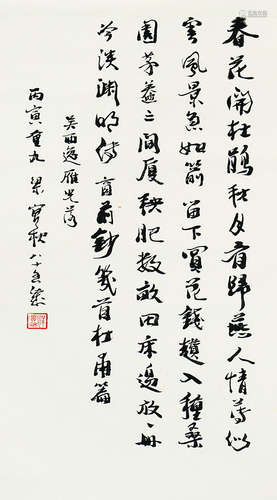 春花聞杜鵑秋月看歸燕人情薄似
雲風景疾如箭留下買花錢趲入種桑
園茅蓋三間厦秧肥數畝田床邊放一冊
冷淡淵明傳窗前鈔幾首杜甫篇
吳西逸雁兒落
丙寅重九 梁實秋 八十五歲